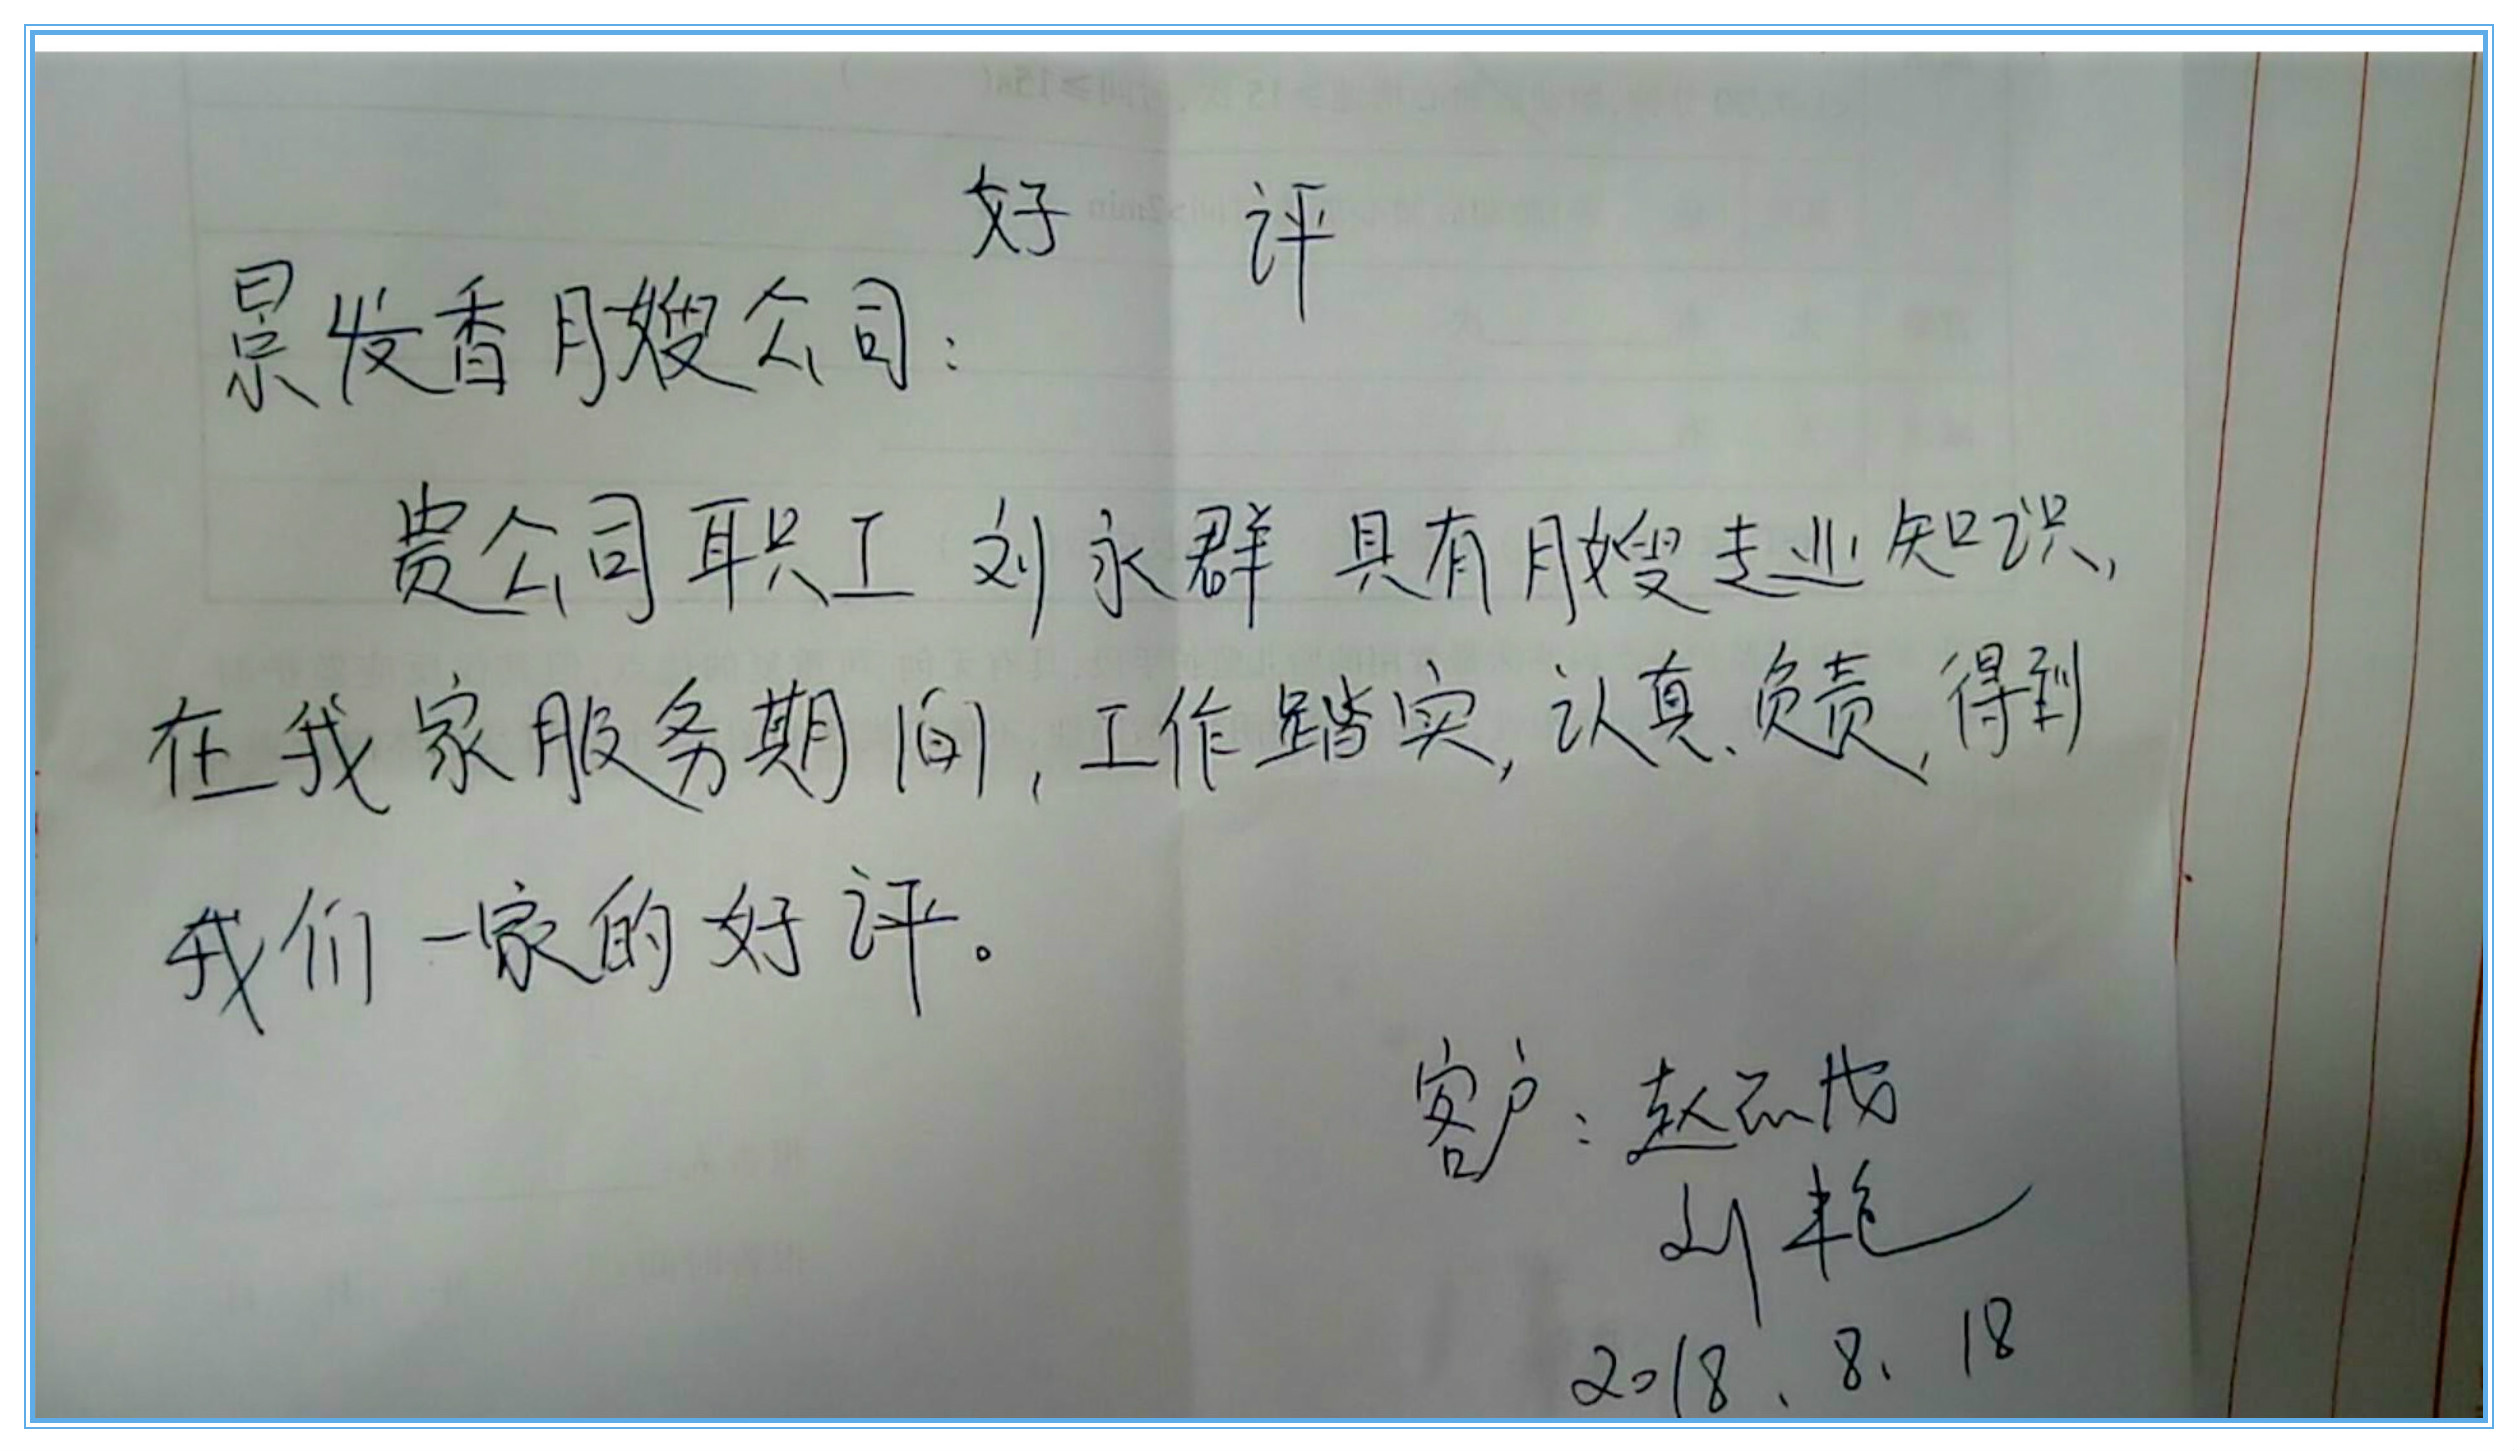 好 评
景发香月嫂公司:
贵公司职工 刘永群 具有月嫂专业知识,
在我家服务期间,工作踏实,认真、负责,得到
我们一家的好评。
客户:赵
刘艳
2018、8、18